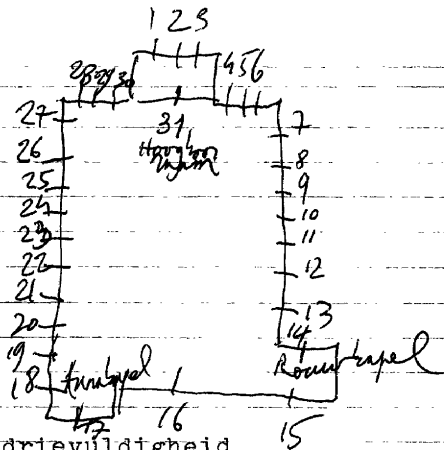 1 2 3
28 29 30 4 5 6
27 31 7
26 8
25 9
24 10
23 11
22 12
21 13
20 14
19
18 kapel
17 16 15
drievuldigheid